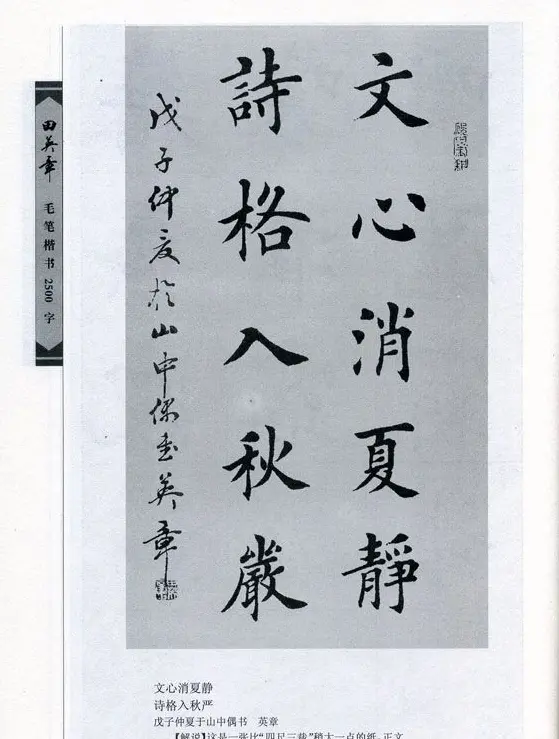 文心消夏靜
詩格入秋嚴
戊子仲夏於山中偶书英章
田英章 毛笔楷书 2500 字
文心消夏静
诗格入秋严
戊子仲夏于山中偶书 英章
【解说】这是一张比“四尺三裁”稍大一点的纸。正文